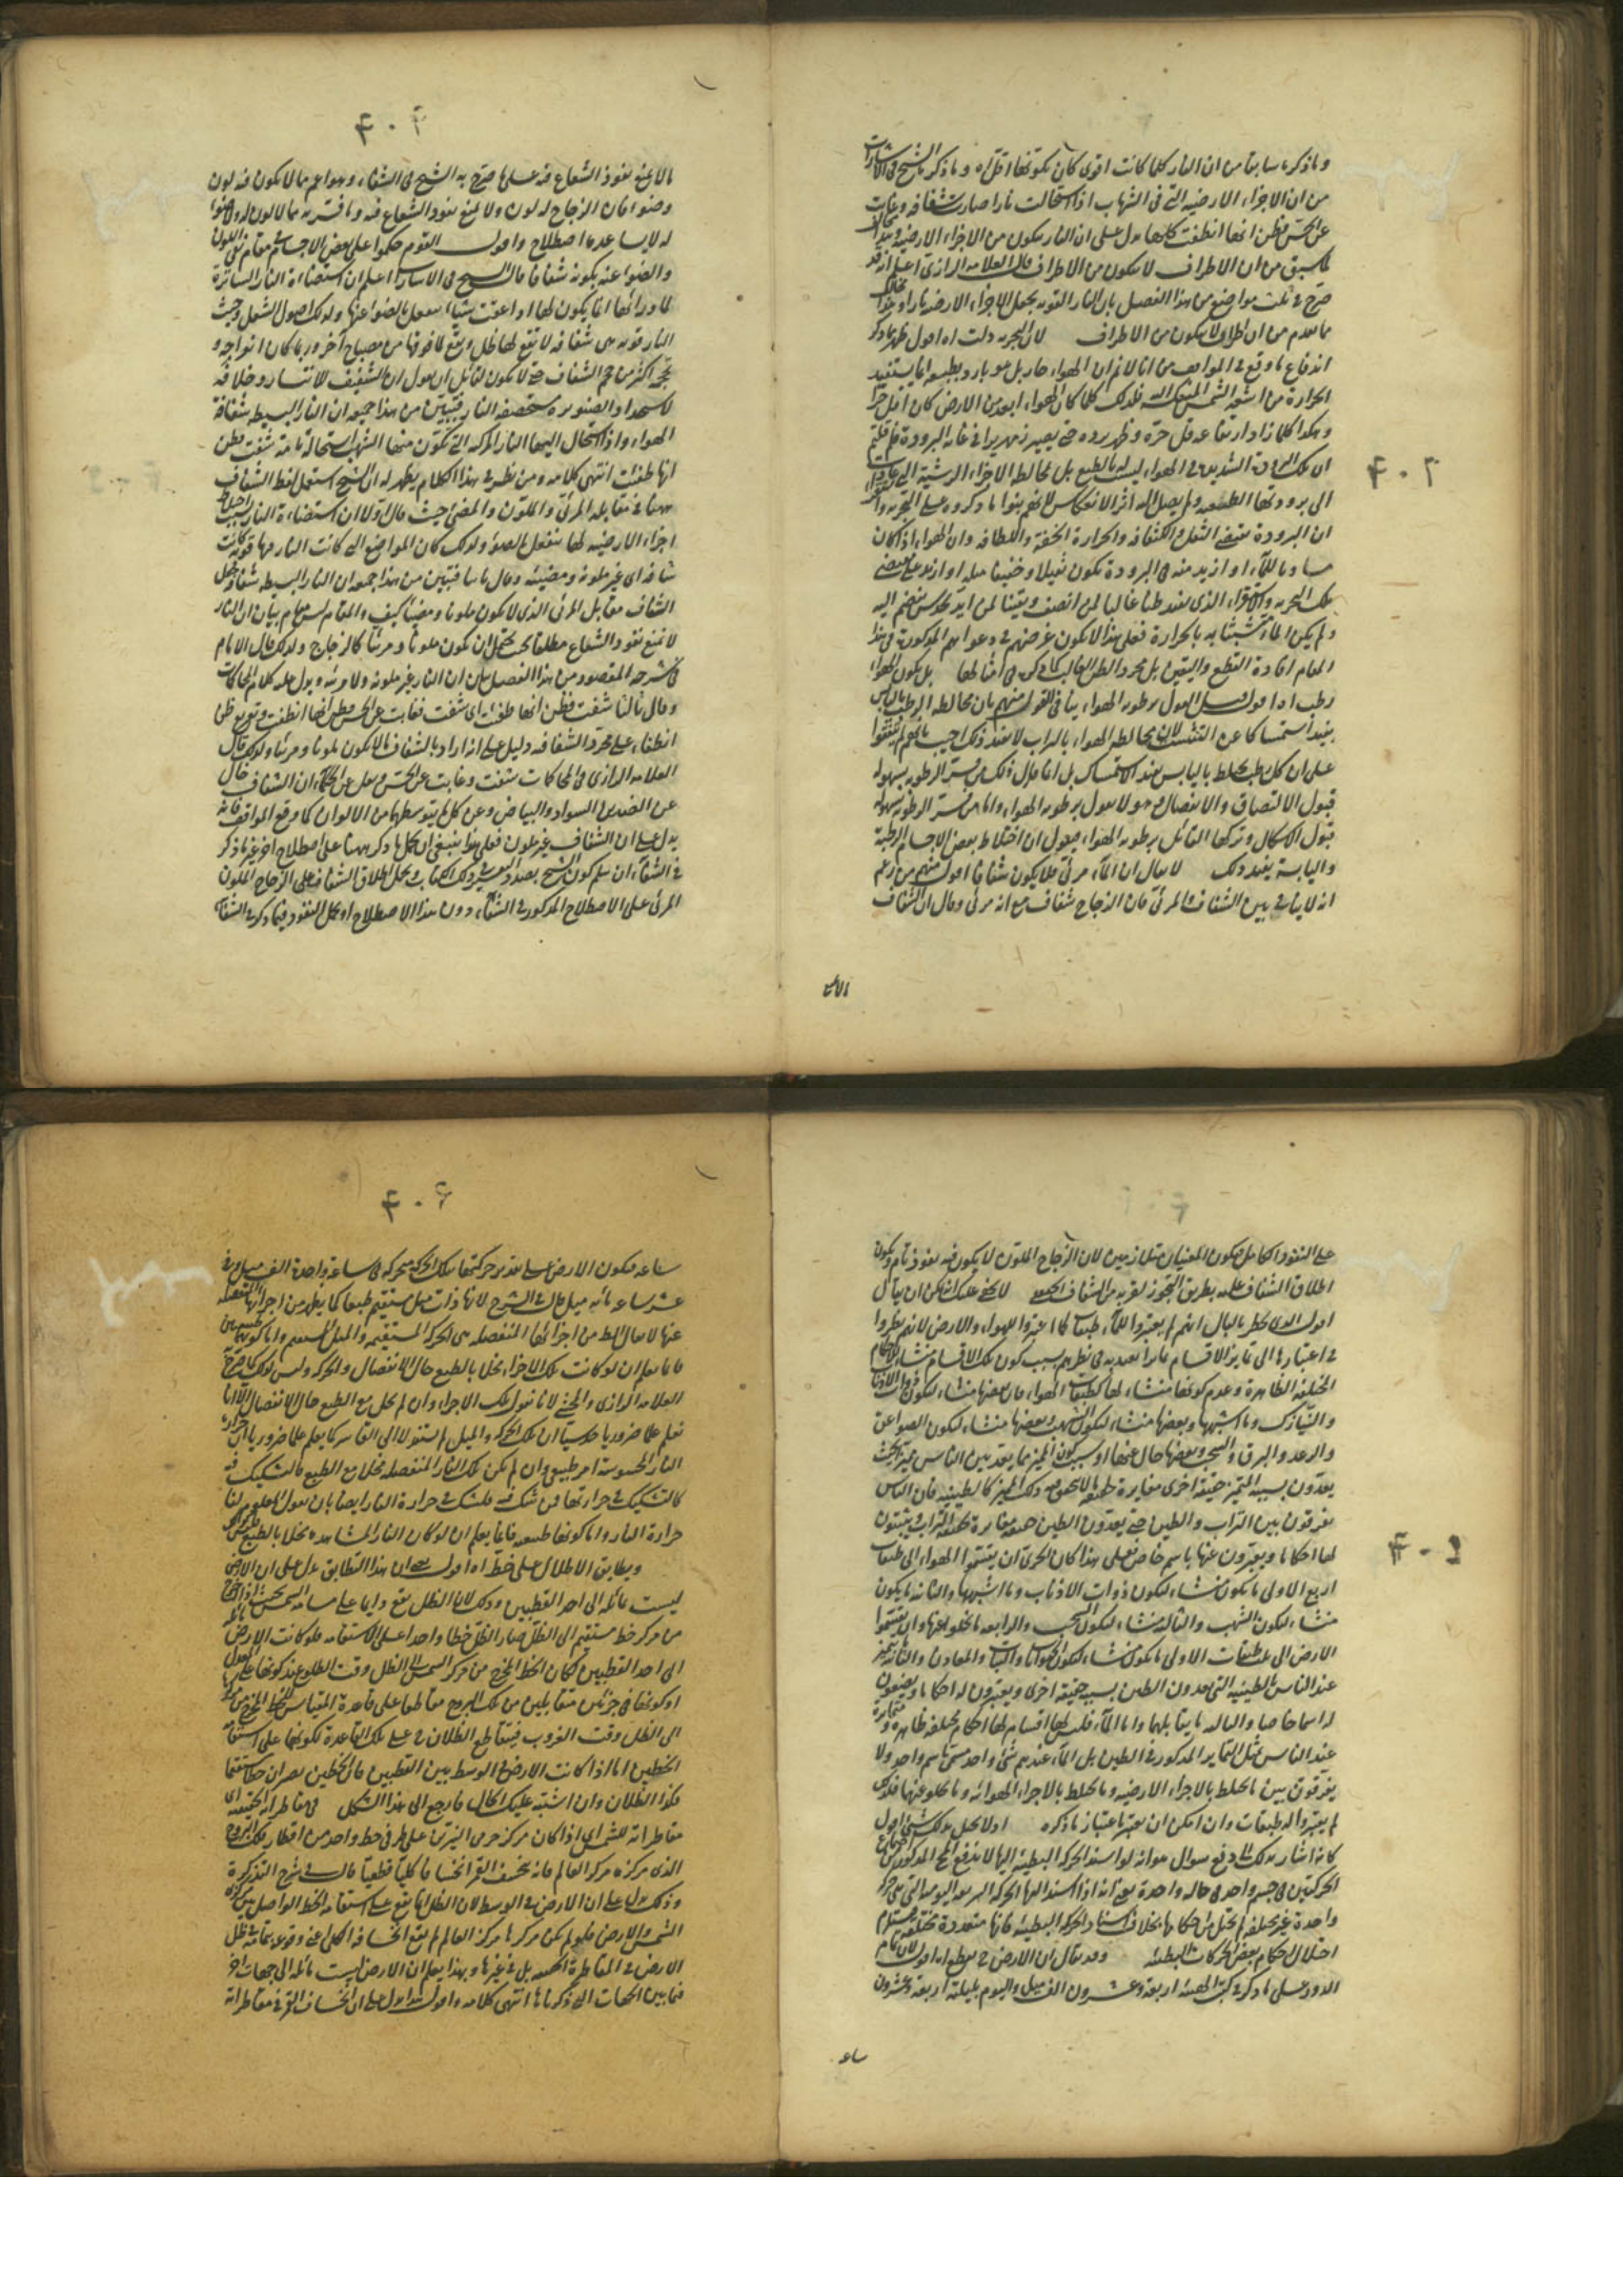 وما ذكره سابقا من ان النار كلما كانت اقوى كان تلونها اقل اه وما ذكره الشيخ فى الاشارات
من ان الاجزاء الارضية التى فى الشهاب اذا استحالت نارا صارت شفافة وغابت
عن الحس فظن انها انطفت كلها يدل على ان النار يتكون من الاجزاء الارضية
لما سبق من ان الاطراف لا يتكون من الاطراف قال العلامة الرازى اعلم انه قد
صرح فى ثلث مواضع من هذا الفصل بان النار القوية يجعل الاجزاء الارضية نارا
ما تقدم من ان الاطراف لا يتكون من الاطراف لان التجربة دلت اه اقول ظهر بما ذكر
اندفاع ما وقع فى المواقف من انا لا نم ان الهواء حار بل هو بارد بطبعه انما يستفيد
الحرارة من اشعة الشمس المنعكسة اليه فلذلك كلما كان الهواء ابعد من الارض كان اقل حرا
وهكذا كلما زاد ارتفاعه قل حره وظهر برده حتى يصير زمهريرا فى غاية البرودة فلم قلتم
ان تلك البرودة الشديدة فى الهواء ليست له بالطبع بل لمخالطة الاجزاء الرشية التى عادت
الى برودتها الطبيعية ولم يصل اليه اثر الانعكاس لانهم بنوا ما ذكروه على التجربة و
ان البرودة يقتضى الثقل والكثافة والحرارة الخفة واللطافة وان الهواء اذا كان
مساويا للماء او ازيد منه فى البرودة يكون ثقيلا وخفيفا مثله او ازيد على مقتضى
تلك التجربة والاستقراء الذى يفيد ظنا غالبا لمن انصف ويقينا لمن ايد بحدس ينضم اليه
ولم يكن الماء متشبثا به بالحرارة فعلى هذا لا يكون غرضهم فى دعواهم المذكورة فى هذا
المقام افادة القطع واليقين بل مجرد الظن الغالب كما فى كون امثالها بل يكون الهواء
رطب اه اقول قيل القول برطوبة الهواء ينافى القول منهم بان مخالطة الرطب باليابس
يفيد استمساكا عن التشتت لان مخالطة الهواء بالتراب لا يفيد ذلك اجيب بانهم لم يتفقوا
على ان كل رطب يخلط باليابس يفيد الاستمساك بل انما قال ذلك من فسر الرطوبة بسهولة
قبول الالتصاق والانفصال وهو لا يقول برطوبة الهواء واما من فسر الرطوبة بسهولة
قبول الاشكال وتركها القائل برطوبة الهواء فيقول ان اختلاط بعض الاجسام الرطبة
واليابسة يفيد ذلك لا يقال ان الماء مرئى فلا يكون شفافا اقول منهم من زعم
انه لا ينافى بين الشفاف والمرئى فان الزجاج شفاف مع انه مرئى وقال ان الشفاف
مالا
٤٠٣
٤٠٤
مالا يمنع نفوذ الشعاع فيه على ما صرح به الشيخ فى الشفاء وهو اعم مما لا يكون فيه لون
وضوء فان الزجاج له لون ولا يمنع نفوذ الشعاع فيه وما فسر به مما لا لون له ولا ضوء
له لا يساعده اصطلاح واقول القوم حكموا على بعض الاجسام فى مقام نفى اللون
والضوء عنه بكونه شفافا قال الشيخ فى الاشارات اعلم ان استضاءة النار الساترة
لما وراءها انما يكون لها اذا علقت شيئا ارضيا ينفعل بالضوء عنها ولذلك اصول الشعل وحيث
النار قوية هى شفافة لا تقع لها ظل ويقع لما فوقها عن مصباح آخر وربما كان انفراجه و
حجمه اكثر من حجم الشفاف حتى لا يكون لقائل ان يقول ان الشفيف للانتشار وخلافه
لاستحداد الصنوبرية مستحصفه النار فتبين من هذا جميعه ان النار البسيطة شفافة
كالهواء واذا استحال اليها النار المركبة التى تكون منها الشهب استحالة تامة شفت فظن
انها طفئت انتهى كلامه ومن نظر فى هذا الكلام يظهر له ان الشيخ استعمل لفظ الشفاف
ههنا فى مقابلة المرئى والملون والمضئ حيث قال اولا ان استضاءة النار بسبب
اجزاء الارضية لها تنفعل بالضوء ولذلك كان المواضع التى كانت النار فيها قوية كانت
شفافة اى غير ملونة ومضيئة وقال ثانيا فتبين من هذا جميعه ان النار البسيطة شفافة
الشفاف مقابل المرئى الذى لا يكون ملونا ومضيئا كيف والمقام ليس مقام بيان ان النار
لا تمنع نفوذ الشعاع مطلقا بحيث يحتمل ان يكون ملونا ومرئيا كالزجاج ولذلك قال الامام
فى شرحه المقصود من هذا الفصل بيان ان النار غير ملونة ولا مرئية ويدل عليه كلام المحاكمات
وقال ثالثا شفت فظن انها طفئت اى شفت فغابت عن الحس فظن انها انطفت وتفريع ظن
انطفاء على مجرد الشفافة دليل على انه اراد بالشفاف ما لا يكون ملونا ومرئيا ولذلك قال
العلامة الرازى فى المحاكمات شفت وغابت عن الحس ونقل عن الحكماء ان الشفاف خال
عن الضدين السواد والبياض وعن كل ما يتوسطهما من الالوان كما وقع فى المواقف فانه
يدل على ان الشفاف غير ملون فعلى هذا ينبغى ان يحمل ما ذكر ههنا على اصطلاح آخر غير ما ذكر
فى الشفاء ان سلم كون الشيخ بصدد التفسير فى ذلك الكتاب ويحمل اطلاق الشفاف على الزجاج الملون
المرئى على الاصطلاح المذكور فى الشفاء دون هذا الاصطلاح او يحمل النفوذ فيما ذكر فى الشفاء
على النفوذ الكامل فيكون المعنيان متلازمين لان الزجاج الملون لا يكون فيه نفوذ تام ويكون
اطلاق الشفاف عليه بطريق التجوز لقربه من الشفاف الحقيقى لا يخفى عليك انه يمكن ان يقال
اقول الذى يخطر بالبال انهم لم يعتبروا للماء طبقات كما اعتبروا للهواء والارض لانهم نظروا
فى اعتبارها الى تمايز الاقسام تمايزا يعتد به فى نظرهم بسبب كون تلك الاقسام منشاء للاحكام
المختلفة الظاهرة وعدم كونها منشاء لها كطبقات الهواء فان بعضها منشاء لتكون ذوات الاذناب
والنيازك وما اشبهها وبعضها منشاء لتكون الشهب وبعضها منشاء لتكون الصواعق
والرعد والبرق والسحب وبعضها خال عنها او بسبب كون المميز مما يعتد بين الناس بحيث
يعدون بسببه المتميز حقيقة اخرى مغايرة لحقيقة ما لا يتحقق فيه ذلك المميز كالطينية فان الناس
يفرقون بين التراب والطين حتى يعدون الطين حقيقة مغايرة لحقيقة التراب ويثبتون
لها احكاما ويعبرون عنها باسم خاص فعلى هذا كان الحرى ان يقسموا الهواء الى طبقات
اربع الاولى ما يكون منشاء لتكون ذوات الاذناب وما اشبهها والثانية ما يكون
منشاء لتكون الشهب والثالثة منشاء لتكون السحب والرابعة ما يخلو عنها وان يقسموا
الارض الى ثلث طبقات الاولى ما يكون منشاء لتكون الحيوانات والنبات والمعادن والثانية يتميز
عند الناس بالطينية التى يعدون الطين بسببه حقيقة اخرى ويعتبرون له احكاما ويضعون
له اسما خاصا والثالثة ما يقابلهما واما الماء فليس لها اقسام لها احكام مختلفة ظاهرة و
عند الناس مثل التمايز المذكور فى الطين بل الماء عندهم شئ واحد مسمى باسم واحد ولا
يفرقون بين ما يختلط بالاجزاء الارضية وما يختلط بالاجزاء الهوائية وما يخلو عنها فلذلك
لم يعتبروا له طبقات وان امكن ان يعتبر باعتبار ما ذكره اولا يختل بذلك شئ اقول
كانه اشار بذلك الى دفع سؤال هو انه لو اسند الحركة البطيئة اليها لا يندفع المحال المذكور من اجتماع
الحركتين فى جسم واحد فى حالة واحدة يعنى انه اذا اسند اليها الحركة السريعة اليومية التى هى حركة
واحدة غير مختلفة لم يختل من احكامها بخلاف اسناد الحركة البطيئة فانها متعددة مختلفة يستلزم
اختلال احكام بعض الحركات البطيئة وقد يقال ان الارض فى يقطع اه اقول لان تمام
الدور على ما ذكر فى كتب الهيئة اربعة وعشرون الف ميل واليوم بليلته اربعة وعشرون
ساعة
٤٠٥
٤٠٦
ساعة فيكون الارض على تقدير حركتها بتلك الحركة متحركة فى ساعة واحدة الف ميل وفى
عشر ساعة مائة ميل قال فى الشرح لانها ذات ميل مستقيم طبعا كما يظهر من اجزائها المنفصلة
عنها لا يقال الظاهر من اجزائها المنفصلة هى الحركة المستقيمة والميل المستقيم واما كونهما طبيعيين
فانما يعلم ان لو كانت تلك الاجزاء مخلا بالطبع حال الانفصال والحركة وليس كذلك كما صرح به
العلامة الرازى والجنى لانا نقول تلك الاجزاء وان لم يخل مع الطبع حال الانفصال الا انا
نعلم علما ضروريا حدسيا ان تلك الحركة والميل لم يستند لا الى القاسر كما يعلم علما ضروريا ان حرارة
النار المحسوسة امر طبيعى وان لم يكن تلك النار المنفصلة مخلا مع الطبع فالتشكيك فيه
كالتشكيك فى حرارتها فمن شك فيه فليشك فى حرارة النار ايضا بان يقول المعلوم لنا
حرارة النار واما كونها طبيعية فانما يعلم ان لو كان النار المشاهدة مخلا بالطبع
ويطابق الاظلال على خط اه اقول يعنى ان هذا التطابق يدل على ان الارض
ليست مائلة الى احد القطبين وذلك لان الظل يقع دايما على مسامتة الشمس بحيث اذا اخرج
من مركز خط مستقيم الى الظل صار الظل خطا واحدا على الاستقامة فلو كانت الارض مائلة
الى احد القطبين لكان الخط المخرج من مركز الشمس الى الظل وقت الطلوع عند كونها على المعدل
او كونها فى جزئين متقابلين من فلك البروج متقاطعا على قاعدة المقياس للخط المخرج من مركزها
الى الظل وقت الغروب فيتقاطع الظلان فى على تلك القاعدة لكونهما على استقامة
الخطين اما اذا كانت الارض فى الوسط بين القطبين فان الخطين يصيران خطا مستقيما
فكذا الظلان وان اشتبه عليك الحال فارجع الى هذا الشكل فى مقاطراته الحقيقية اى
مقاطراته للشمس اى اذا كان مركز جرمى النيرين على طرفى خط واحد من اقطار فلك البروج
الذى مركزه مركز العالم فانه ينخسف القمر انخسافا كليا قطعيا قال فى شرح التذكرة
وذلك يدل على ان الارض فى الوسط لان الظل انما يقع على استقامة الخط الواصل بين مركزى
الشمس والارض فلو لم يكن مركزها مركز العالم لم يقع انخسافه الكلى اعنى وقوعه بتمامه فى ظل
الارض فى المقاطرة الحقيقية بل فى غيرها وبهذا يعلم ان الارض ليست مائلة الى جهات اخر
فيما بين الجهات التى ذكرناها انتهى كلامه واقول هذا يدل على ان انخساف القمر فى مقاطراته